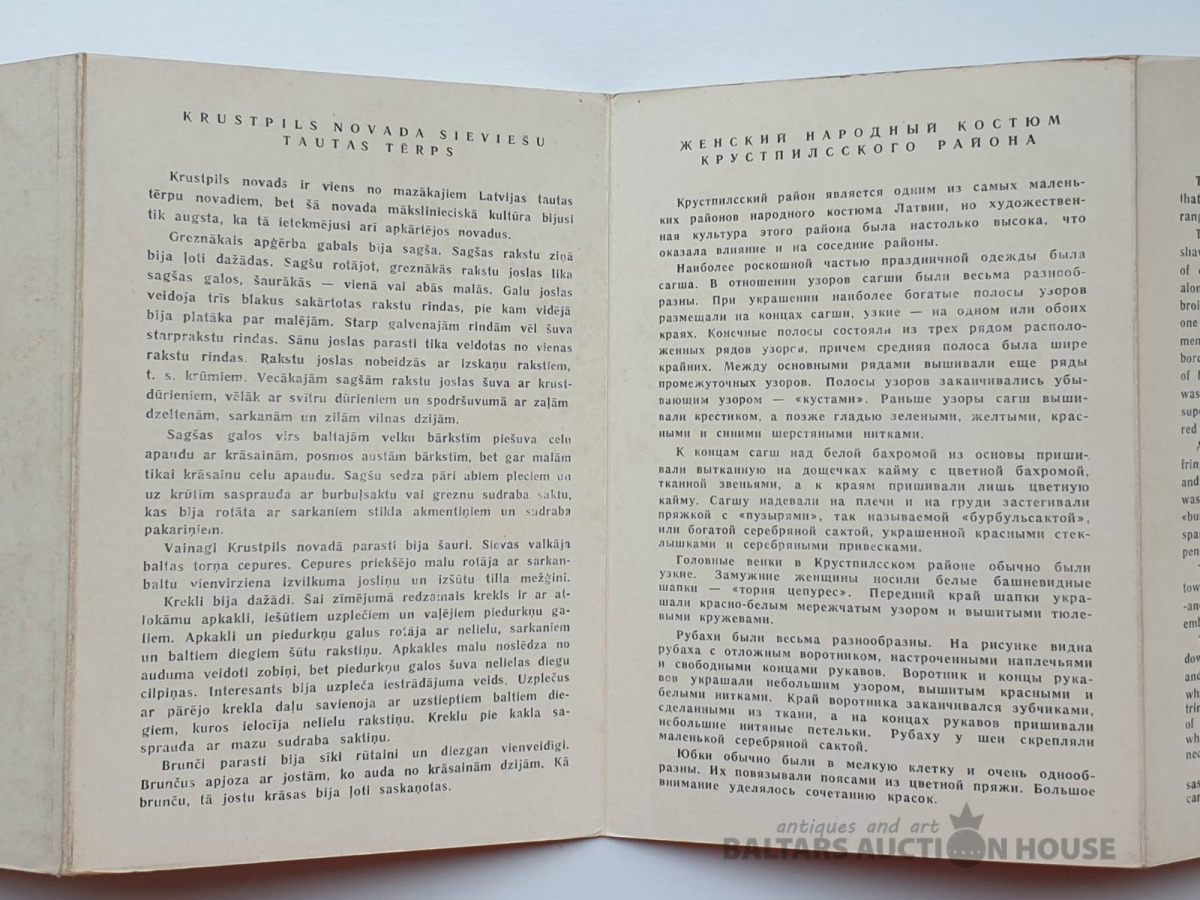 KRUSTPILS NOVADA SIEVIEŠU
TAUTAS TĒRPS
Krustpils novads ir viens no mazākajiem Latvijas tautas
tērpu novadiem, bet šā novada mākslinieciskā kultūra bijusi
tik augsta, ka tā ietekmējusi arī apkārtējos novadus.
Greznākais apģērba gabals bija sagša. Sagšas rakstu ziņā
bija ļoti dažādas. Sagšu rotājot, greznākās rakstu joslas lika
sagšas galos, šaurākās — vienā vai abās malās. Galu joslas
veidoja trīs blakus sakārtotas rakstu rindas, pie kam vidējā
bija platāka par malējām. Starp galvenajām rindām vēl šuva
starprakstu rindas. Sānu joslas parasti tika veidotas no vienas
rakstu rindas. Rakstu joslas nobeidzās ar izskaņu rakstiem,
t. s. krūmiem. Vecākajām sagšām rakstu joslas šuva ar krust-
dūrieniem, vēlāk ar svītru dūrieniem un spodršuvumā ar zaļām
dzeltenām, sarkanām un zilām vilnas dzijām.
Sagšas galos virs baltajām velku bārkstīm piešuva celu
apaudu ar krāsainām, posmos austām bārkstīm, bet gar malām
tikai krāsainu celu apaudu. Sagšu sedza pāri abiem pleciem un
uz krūtīm sasprauda ar burbuļsaktu vai greznu sudraba saktu,
kas bija rotāta ar sarkaniem stikla akmentiņiem un sudraba
pakariņiem.
Vainagi Krustpils novadā parasti bija šauri. Sievas valkāja
baltas torņa cepures. Cepures priekšējo malu rotāja ar sarkan-
baltu vienvirziena izvilkuma josliņu un izšūtu tilla mežģini.
Krekli bija dažādi. Šai zīmējumā redzamais krekls ir ar at-
lokāmu apkakli, iešūtiem uzplečiem un vaļējiem piedurkņu ga-
liem. Apkakli un piedurkņu galus rotāja ar nelielu, sarkaniem
un baltiem diegiem šūtu rakstiņu. Apkakles malu noslēdza no
auduma veidoti zobiņi, bet piedurkņu galos šuva nelielas diegu
cilpiņas. Interesants bija uzpleča iestrādājuma veids. Uzplečus
ar pārējo krekla daļu savienoja ar uzstieptiem baltiem die-
giem, kuros ielocīja nelielu rakstiņu. Kreklu pie kakla sa-
sprauda ar mazu sudraba saktiņu.
Brunči parasti bija sīki rūtaini un diezgan vienveidīgi.
Brunčus apjoza ar jostām, ko auda no krāsainām dzijām. Kā
brunču, tā jostu krāsas bija ļoti saskaņotas.
ЖЕНСКИЙ НАРОДНЫЙ КОСТЮМ
КРУСТПИЛССКОГО РАЙОНА
Крустпилсский район является одним из самых малень-
ких районов народного костюма Латвии, но художествен-
ная культура этого района была настолько высока, что
оказала влияние и на соседние районы.
Наиболее роскошной частью праздничной одежды была
сагша. В отношении узоров сагши были весьма разнооб-
разны. При украшении наиболее богатые полосы узоров
размещали на концах сагши, узкие — на одном или обоих
краях. Конечные полосы состояли из трех рядом располо-
женных рядов узоров, причем средняя полоса была шире
крайних. Между основными рядами вышивали еще ряды
промежуточных узоров. Полосы узоров заканчивались убы-
вающим узором — «кустами». Раньше узоры сагш выши-
вали крестиком, а позже гладью зелеными, желтыми, крас-
ными и синими шерстяными нитками.
К концам сагш над белой бахромой из основы приши-
вали вытканную на дощечках кайму с цветной бахромой,
тканной звеньями, а к краям пришивали лишь цветную
кайму. Сагшу надевали на плечи и на груди застегивали
пряжкой с «пузырями», так называемой «бурбульсактой»,
или богатой серебряной сактой, украшенной красными стек-
лышками и серебряными привесками.
Головные венки в Крустпилсском районе обычно были
узкие. Замужние женщины носили белые башневидные
шапки — «торня цепурес». Передний край шапки укра-
шали красно-белым мережчатым узором и вышитыми тюле-
выми кружевами.
Рубахи были весьма разнообразны. На рисунке видна
рубаха с отложным воротником, настроченными наплечьями
и свободными концами рукавов. Воротник и концы рука-
вов украшали небольшим узором, вышитым красными и
белыми нитками. Край воротника заканчивался зубчиками,
сделанными из ткани, а на концах рукавов пришивали
небольшие нитяные петельки. Рубаху у шеи скрепляли
маленькой серебряной сактой.
Юбки обычно были в мелкую клетку и очень однооб-
разны. Их повязывали поясами из цветной пряжи. Большое
внимание уделялось сочетанию красок.
antiques and art
BALTARS AUCTION HOUSE